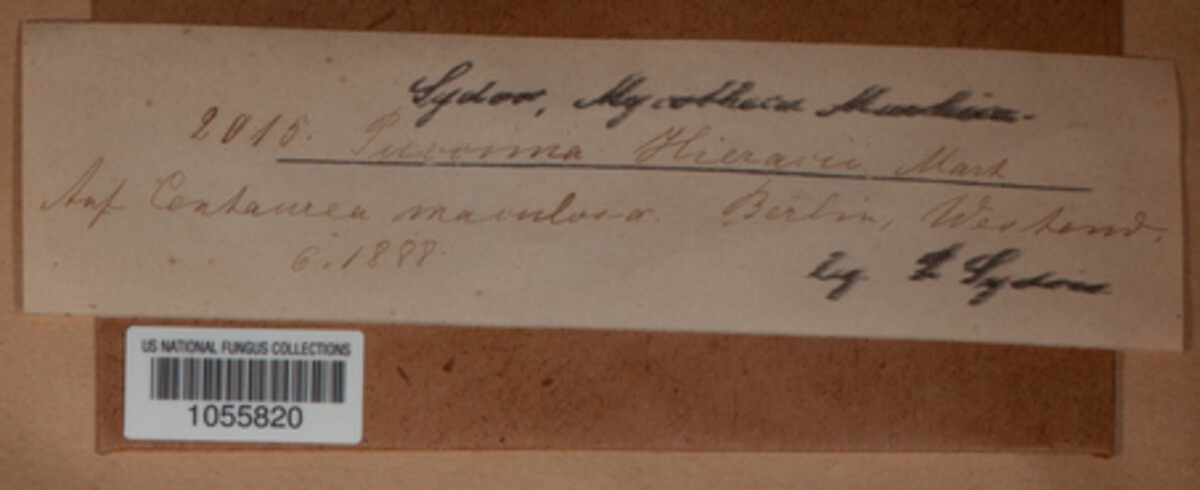 Sydow, Mycotheca Marchica.
2015. Puccinia Hieracii Mart
Auf Centaurea maculosa. Berlin, Westend.
6. 1888.
leg. P. Sydow
US NATIONAL FUNGUS COLLECTIONS
1055820